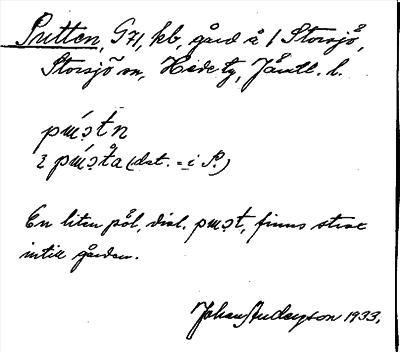 Putten, G71, kb, gård å 1 Storsjö,
Storsjö sn, Hede tg, Jämtl. l.
pɯ́ɔt́n
ɩ pɯ́ɔt̊a (dat. = i P.)
En liten pöl, dial. pɯɔt, finns strax
intill gården.
Johan Anderson 1933.